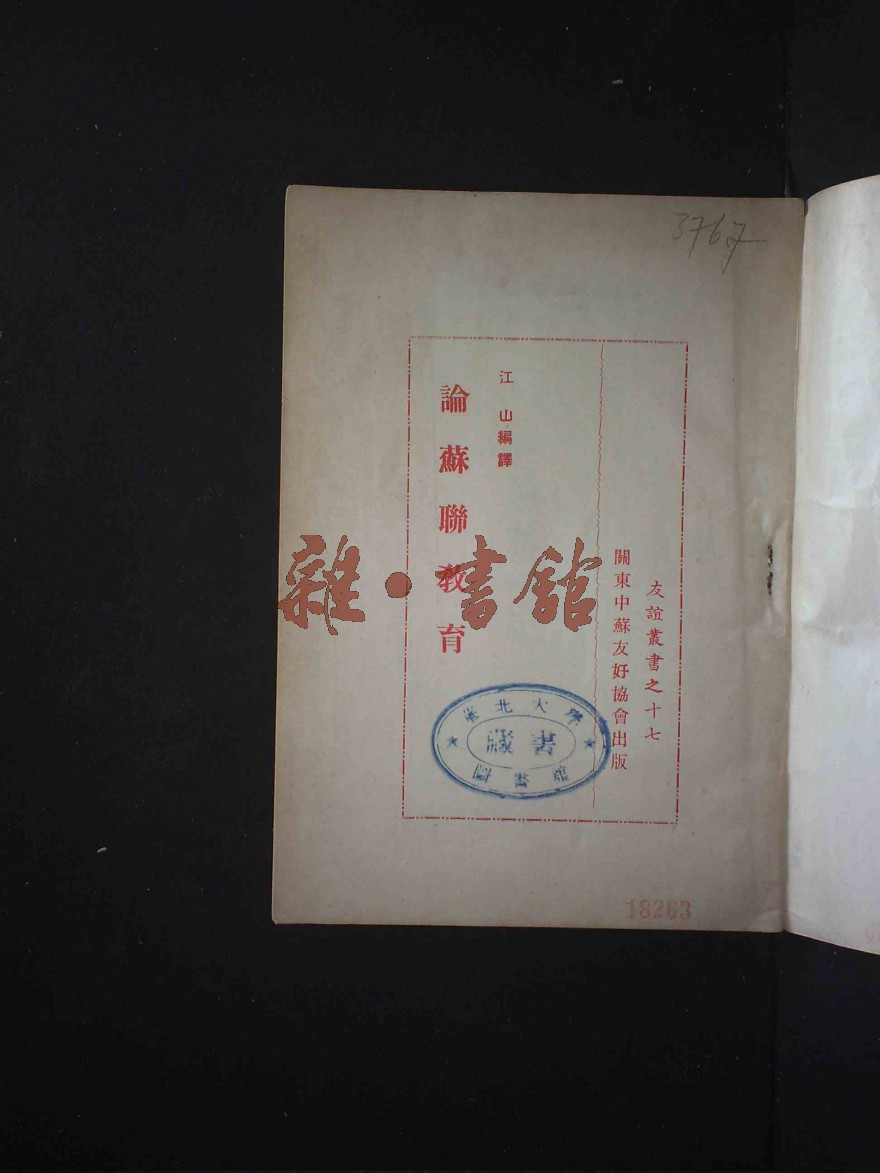 3767
友誼叢書之十七
關東中蘇友好協會出版
江山編譯
論蘇聯教育
雜·書館
華北大學
藏書
圖書館
18263